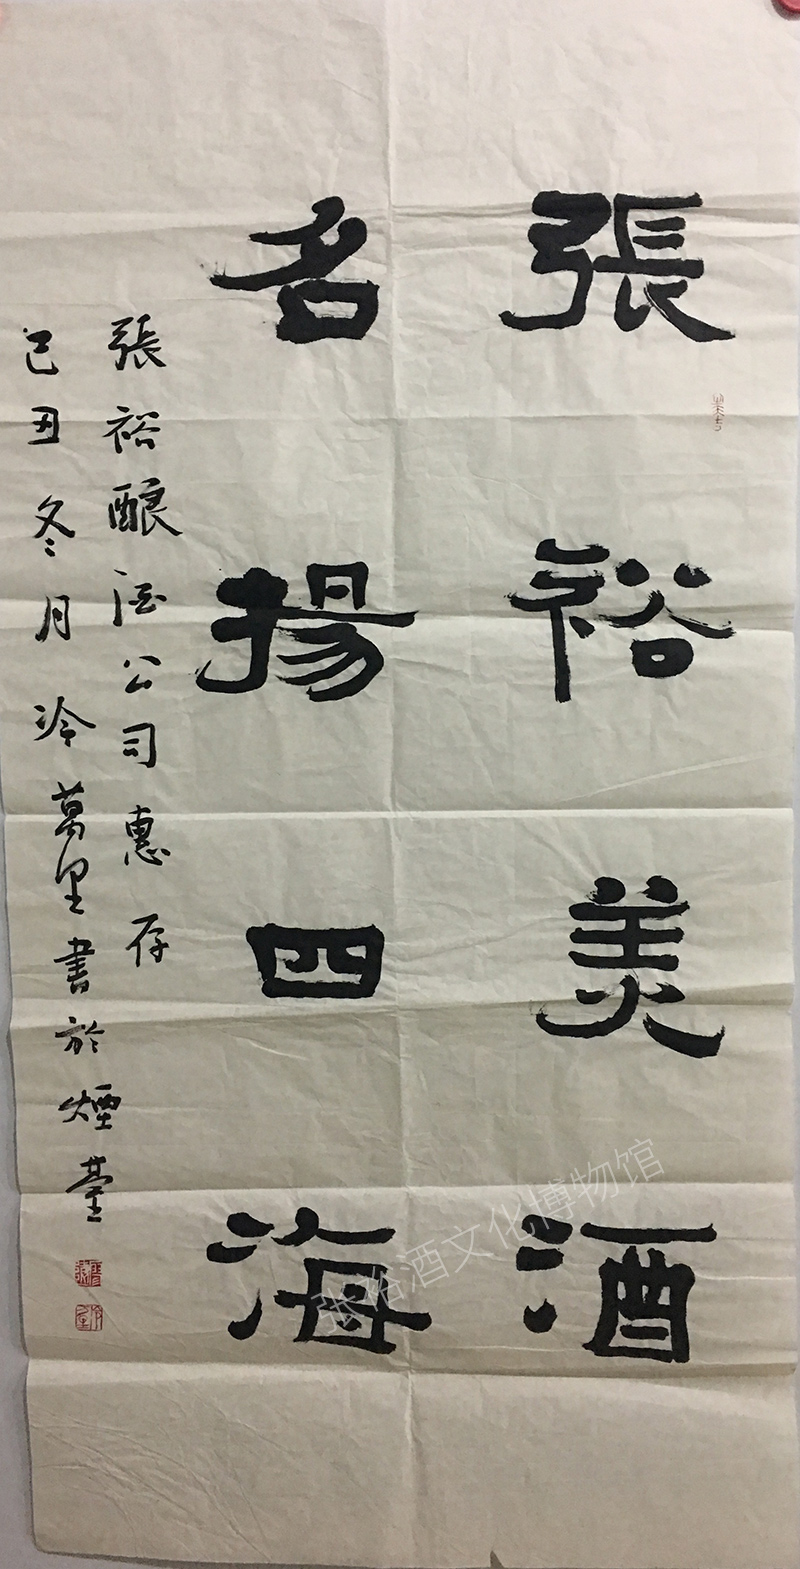 張裕美酒
名揚四海
張裕酿酒公司惠存
己丑冬月冷萬里書於煙臺
张裕酒文化博物馆